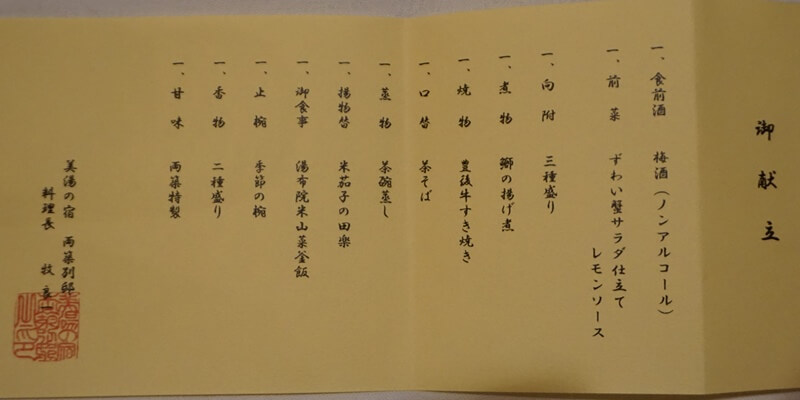 御献立
一、食前酒　梅酒（ノンアルコール）
一、前菜　ずわい蟹サラダ仕立て
レモンソース
一、向附　三種盛り
一、煮物　鰤の揚げ煮
一、焼物　豊後牛すき焼き
一、口替　茶そば
一、蒸物　茶碗蒸し
一、揚物替　米茄子の田楽
一、御食事　湯布院米山菜釜飯
一、止椀　季節の椀
一、香物　二種盛り
一、甘味　両築特製
美湯の宿　両築別邸
料理長　牧